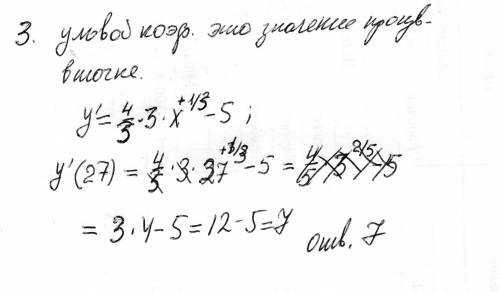 3. угловой коэф. это значение произв-
в точке.
y' = 4/3 · 3 · x^{+1/3} - 5 ;
y'(27) = 4/3 · 3 · 27^{+1/3} - 5 =
= 3 · 4 - 5 = 12 - 5 = 7
отв. 7